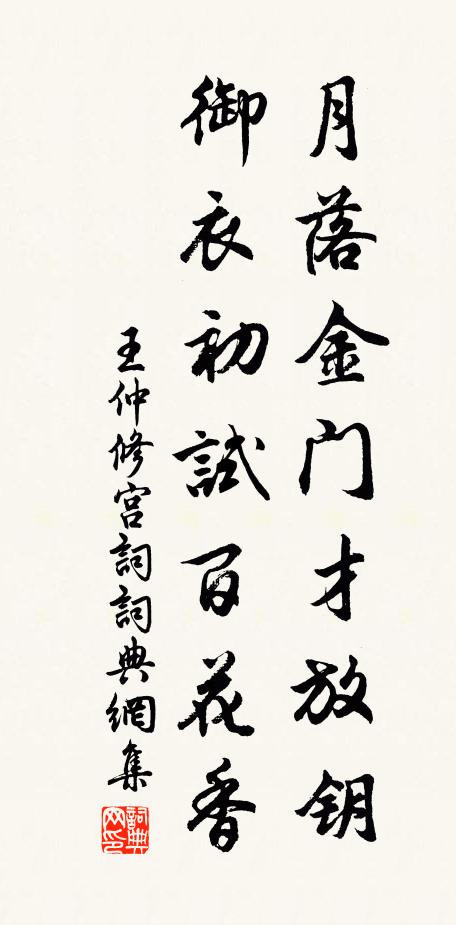 月落金門才放钥
御衣初試百花香
王仲修宮詞詞典網集
詞典网印